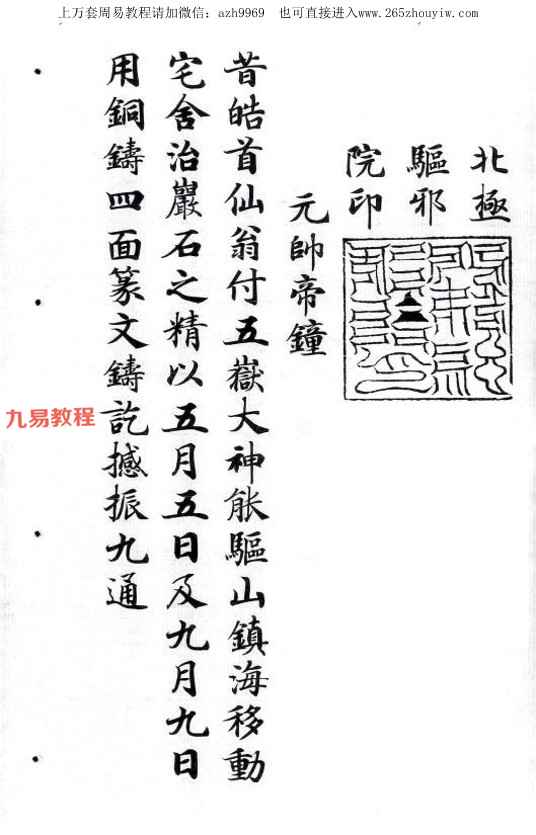 上万套周易教程请加微信：azh9969 也可直接进入www.265zhouyiw.com
北極
驅邪
院印
元帥帝鐘
昔皓首仙翁付五嶽大神能驅山鎮海移動
宅舍治巖石之精以五月五日及九月九日
用銅鑄四面篆文鑄訖撼振九通
九易教程